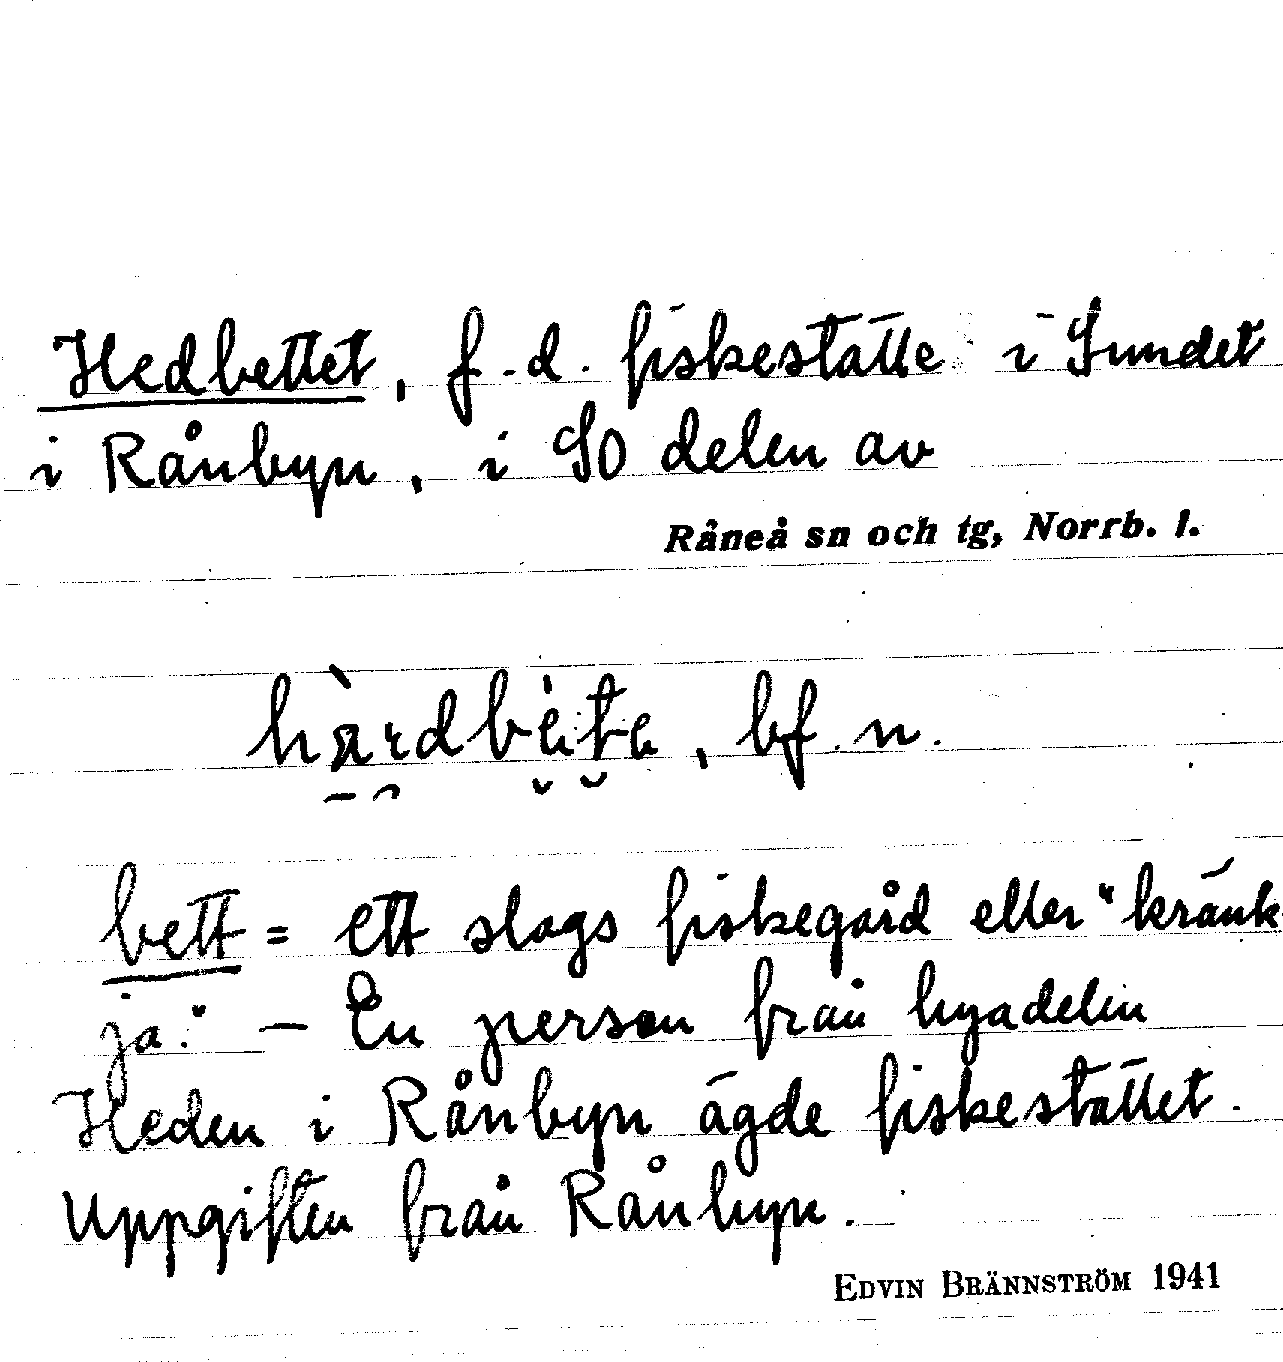 Hedbettet, f.d. fiskeställe i Sundet
i Rånbyn, i SO delen av
Råneå sn och tg, Norrb. l.
bf. n.
bett = ett slags fiskegård eller "kränk
ja". — En person från byadelen
Heden i Rånbyn ägde fiskestället.
Uppgiften från Rånbyn.
EDVIN BRÄNNSTRÖM 1941